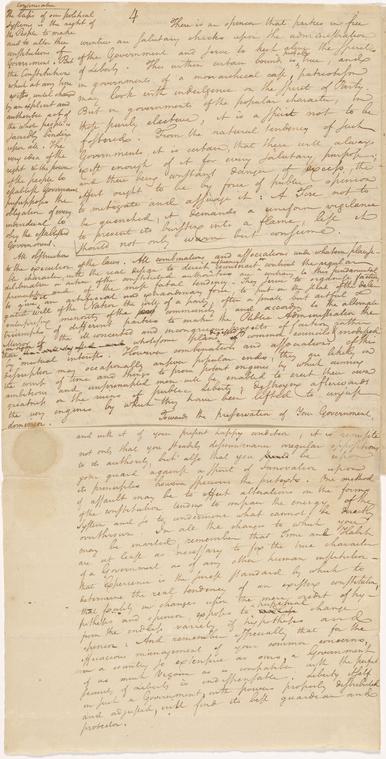 4
The basis of our political
Systems is the right of
the People to make
and to alter their
constitutions of
Government. But
the Constitution
which at any time
exists, until changed
by an explicit and
authentic act of
the whole people is
sacredly binding
upon all. The
very idea of the
right & the power
of the people to
establish Government
presupposes the
obligation of every
individual to
obey the established
Government.
All obstructions
There is an opinion that parties in free
countries are salutary checks upon the administration
of the Government and serve to keep alive the spirit
of Liberty. This within certain bounds is true, and
in governments of a monarchical cast, patriotism
may look with indulgence on the spirit of Party.
But in governments of the popular character, in
those purely elective, it is a spirit not to be
fostered. From the natural tendency of such
Governments it is certain, that there will always
exist enough of it for every salutary purpose;
and there being constant danger of excess, the
effort ought to be by force of public opinion
to mitigate and assuage it. A Fire not to
be quenched; it demands a uniform vigilance
to prevent its bursting into a flame, lest it
should not only warm but consume.
to the execution of the laws. All combinations and associations with whatever plausi-
the character with the real design to direct
deliberation or action of the constituted authorities contrary to this fundamental
principle and of the most fatal tendency. They serve to organize faction
to give it an artificial and extraordinary force, to put in the place of the dele-
gated will of the Nation the will of a party, often a small but artful
minority of the community; and according to the alternate
triumphs of different parties to make the Public Administration the
Mirror of the ill concerted and incongruous projects of faction, rather
than wholesome plans of common councils modified
by mutual interests. However combinations and associations of this
description may occasionally answer popular ends, they are likely in
the course of time and things to become potent engines by which cunning
ambitious and unprincipled men will be enabled to erect their own
greatness on the ruins of public Liberty; destroying afterwards
the very engines, by which they have been lifted to unjust
dominion.
Towards the preservation of Your Government,
and with it of your present happy condition, it is requisite
not only that you steadily discountenance irregular oppositions
to its authority, but also that you be upon
your guard against a spirit of Innovation upon
its principles however specious the pretexts. One method
of assault may be to effect alterations in the forms
of the constitution tending to impair the energy of the
System and so to undermine what cannot be directly
overthrown. In all the changes to which you
may be invited, remember that Time and Habit
are at least as necessary to fix the true character
of a Government as of any other human institution—
that Experience is the surest standard by which to
determine the real tendency of an existing constitution,
that facility in changes upon the mere credit of hy-
pothesis and opinion exposes to perpetual change
from the endless variety of hypothesis and
opinion. And remember especially that for the
efficacious management of your common concerns,
in a country so extensive as ours, a Government
of as much Vigour as is compatible with the perfect
security of Liberty is indispensable. Liberty itself
in such a Government, with powers properly distributed
and adjusted, will find its best guardian and
protector.